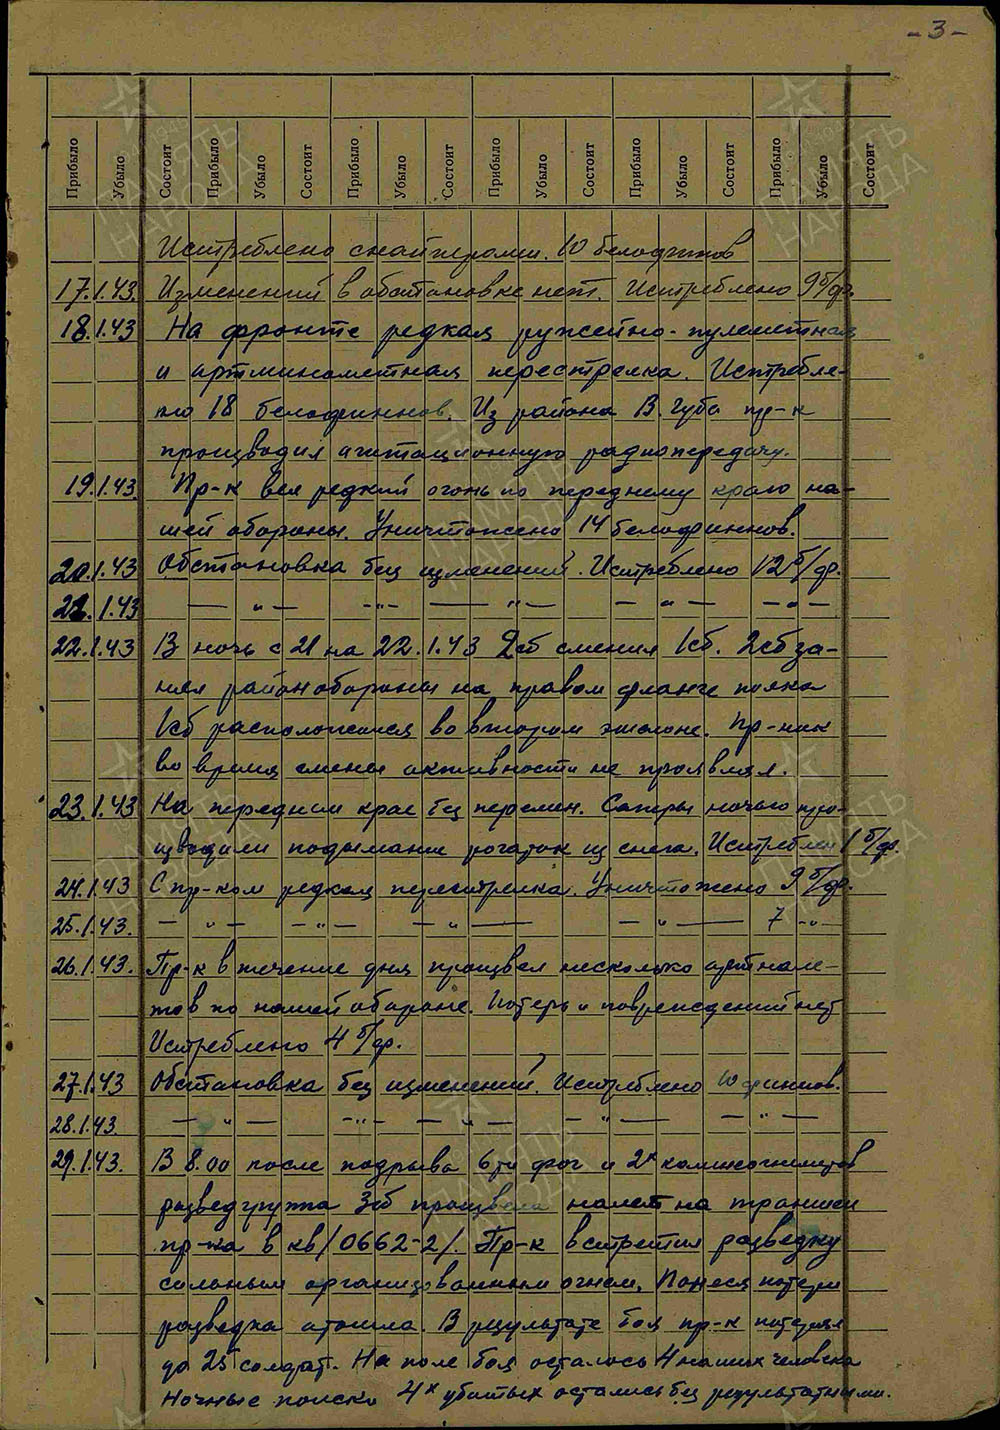 - 3 -
Прибыло Убыло Состоит Прибыло Убыло Состоит Прибыло Убыло Состоит Прибыло Убыло Состоит Прибыло Убыло Состоит Прибыло Убыло Состоит
Истреблено снайперами 10 белофинов
17.1.43. Изменений в обстановке нет. Истреблено 9 б/ф.
18.1.43 На фронте редкая ружейно-пулеметная
и артминометная перестрелка. Истребле-
но 18 белофиннов. Из района В. Губа пр-к
производил агитационную радиопередачу.
19.1.43 Пр-к вел редкий огонь по переднему краю на-
шей обороны. Уничтожено 14 белофиннов.
20.1.43 Обстановка без изменений. Истреблено 12 б/ф.
21.1.43 — " — — " — — " — — " — — " —
22.1.43 В ночь с 21 на 22.1.43 2сб сменил 1сб. 2сб за-
нял район обороны на правом фланге полка
1сб расположился во втором эшелоне. Пр-ник
во время смены активности не проявлял.
23.1.43 На переднем крае без перемен. Саперы ночью про-
изводили подымание рогаток из снега. Истреблен 1 б/ф.
24.1.43 С пр-ком редкая перестрелка. Уничтожено 9 б/ф.
25.1.43. — " — — " — — " — — " — 7 - " -
26.1.43. Пр-к в течение дня произвел несколько артнале-
тов по нашей обороне. Потерь и повреждений нет
Истреблено 4 б/ф.
27.1.43 Обстановка без изменений. Истреблено 10 финнов.
28.1.43. — " — — " — — " — — " — — " —
29.1.43. В 8.00 после подрыва 6ти фог и 2х камнеогнеметов
разведгруппа 3сб произвела налет на траншеи
пр-ка в кв /0662-2/. Пр-к встретил разведку
сильным организованным огнем. Понеся потери
разведка отошла. В результате боя пр-к потерял
до 25 солдат. На поле боя осталось 4 наших человека
Ночные поиски 4х убитых остались без результатными.
ПАМЯТЬ НАРОДА